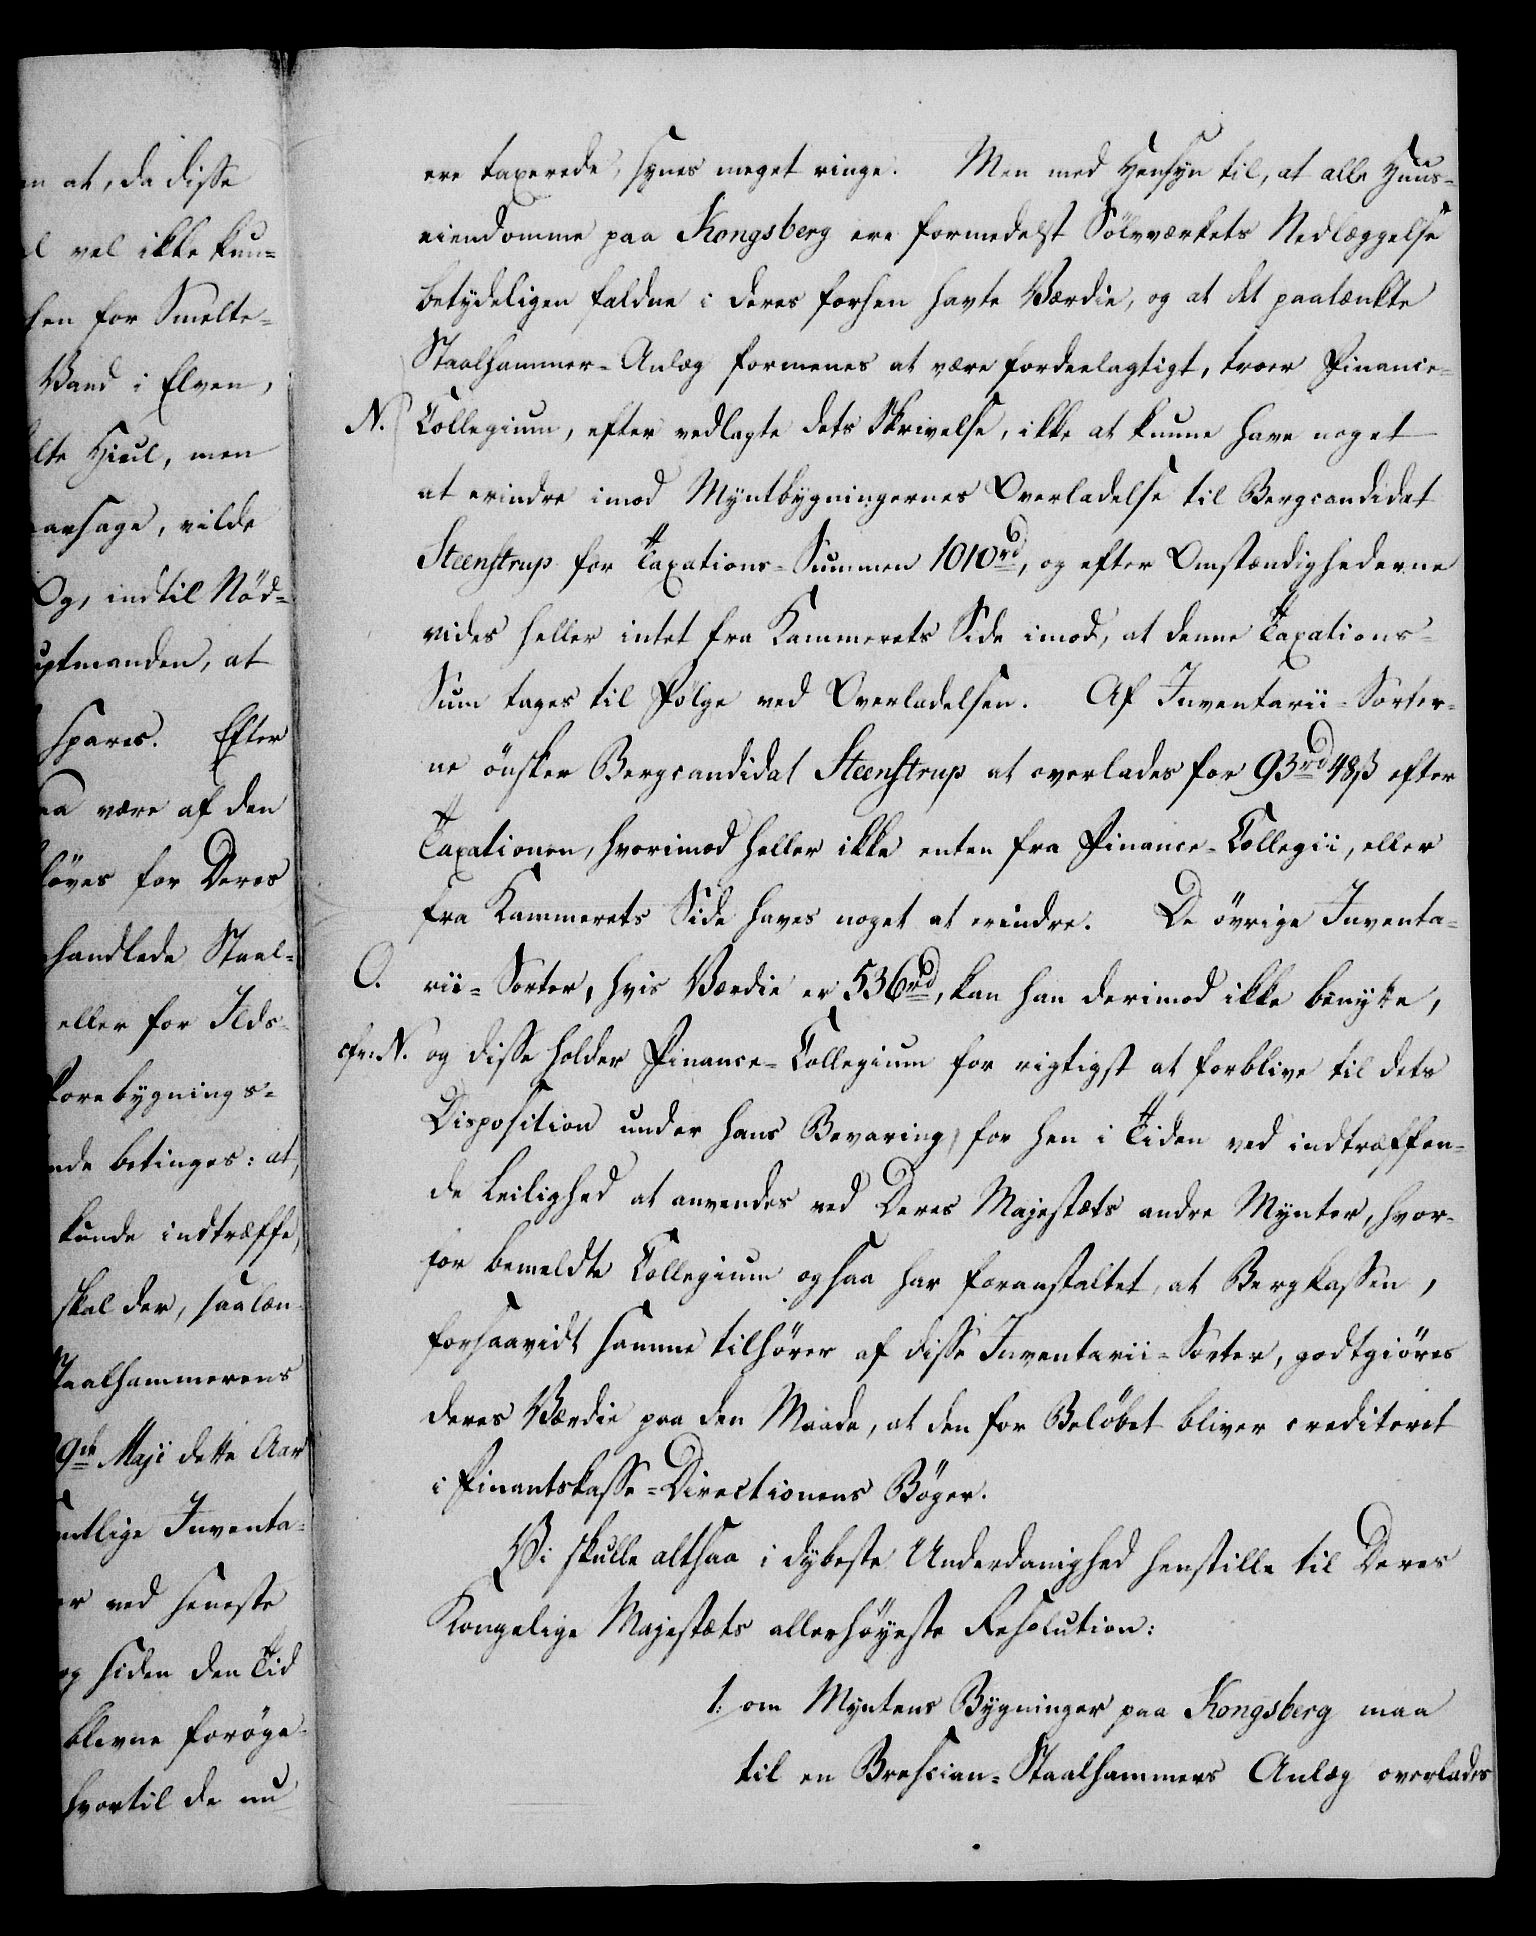 en at, da disse
vel ikke kun-
hen for Smelte-
Vand i Elven,
Hiul, men
aarsage, vilde
Og, indtil Nöd-
uptmanden, at
spares. Efter
aa være af den
löves for Deres
handlede Staal-
eller for Ilds-
forebygnings-
nde betinges: at,
kunde indtræffe,
skal der, saalæn-
Staalhammerens
9de Maji dette Aar
mtlige Inventa-
er ved seneste
og siden den Tid
blevne foröge-
hvortil de nu
ere taxerede, synes meget ringe. Men med Hensyn til, at alle Huus-
eiendomme paa Kongsberg ere formedelst Sölvværkets Nedlæggelse
betydeligen faldne i deres forhen havte Værdie, og at det paatænkte
Staalhammer-Anlæg formenes at være fordeelagtigt, troer Finance-
N. Collegium, efter vedlagte dets Skrivelse, ikke at kunne have noget
at erindre imod Myntbygningernes Overladelse til Bergcandidat
Steenstrup for Taxations-Summen 1010rd, og efter Omstændighederne
vides heller intet fra Kammerets Side imod, at denne Taxations-
Sum tages til Følge ved Overladelsen. Af Inventarii-Sorter-
ne önsker Bergcandidat Steenstrup at overlades for 93rd 48ß efter
Taxationen, hvorimod heller ikke enten fra Finance-Collegii, eller
fra Kammerets Side haves noget at erindre. De övrige Inventa-
O. rii-Sorter, hvis Værdie er 536rd, kan han derimod ikke benytte,
cfr: N. og disse holder Finance-Collegium for rigtigst at forblive til dets
Disposition under hans Bevaring, for hen i Tiden ved indtræffen-
de Leilighed at anvendes ved Deres Majestæts andre Mynter, hvor-
for bemeldte Collegium ogsaa har foranstaltet, at Bergkassen,
forsaavidt samme tilhörer af disse Inventarii-Sorter, godtgiöres
deres Værdie paa den Maade, at den for Belöbet bliver crediteret
i Finantskasse-Directionens Böger.
Vi skulle altsaa i dybeste Underdanighed henstille til Deres
Kongelige Majestæts allerhöyeste Resolution:
1: om Myntens Bygninger paa Kongsberg maa
til en Brescian-Staalhammers Anlæg overlades